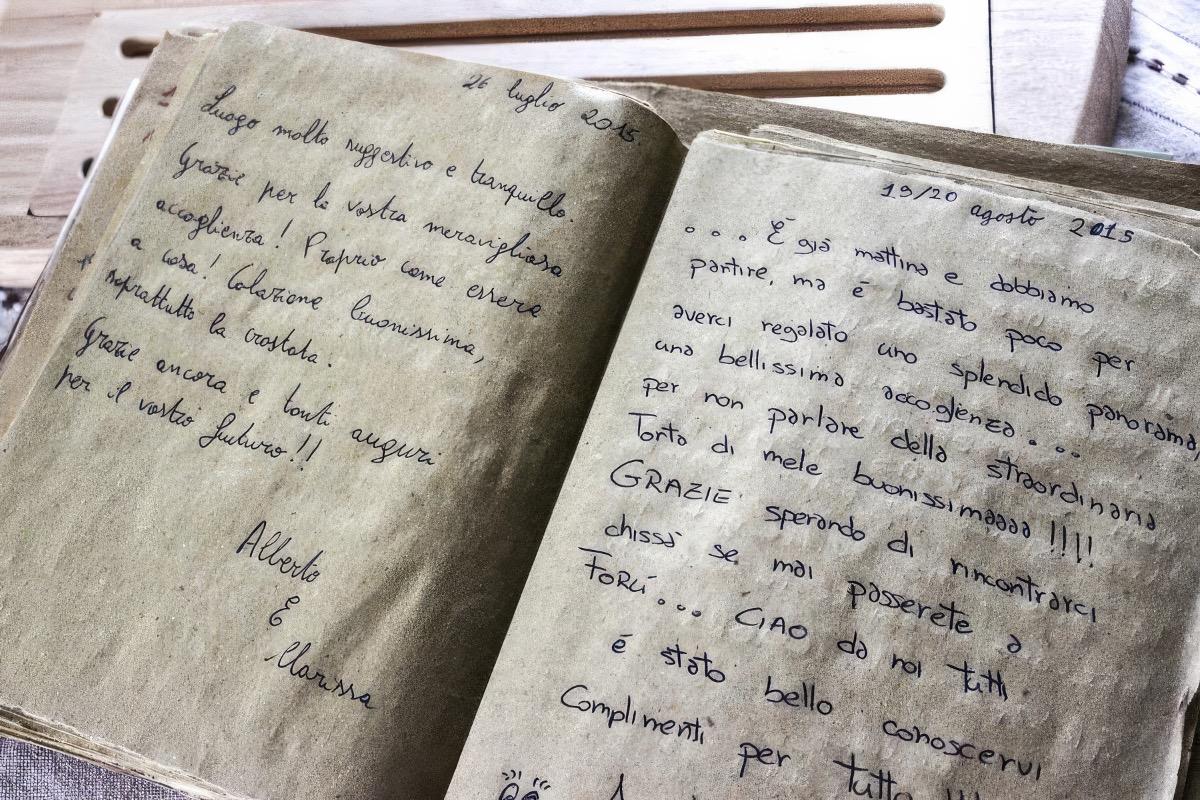 26 luglio 2015.
Luogo molto suggestivo e tranquillo.
Grazie per la vostra meravigliosa
accoglienza! Proprio come essere
a casa! Colazione buonissima,
soprattutto la crostata.
Grazie ancora e tanti auguri
per il vostro futuro!!
Alberto
E
Clarissa
19/20 agosto 2015
... È già mattina e dobbiamo
partire, ma é bastato poco per
averci regalato uno splendido panorama,
una bellissima accoglienza...
per non parlare della straordinaria
Torta di mele buonissimaaaa !!!!
GRAZIE sperando di rincontrarci
chissà se mai passerete a
FORLÍ... CIAO da noi tutti
é stato bello conoscervi
Complimenti per tutto